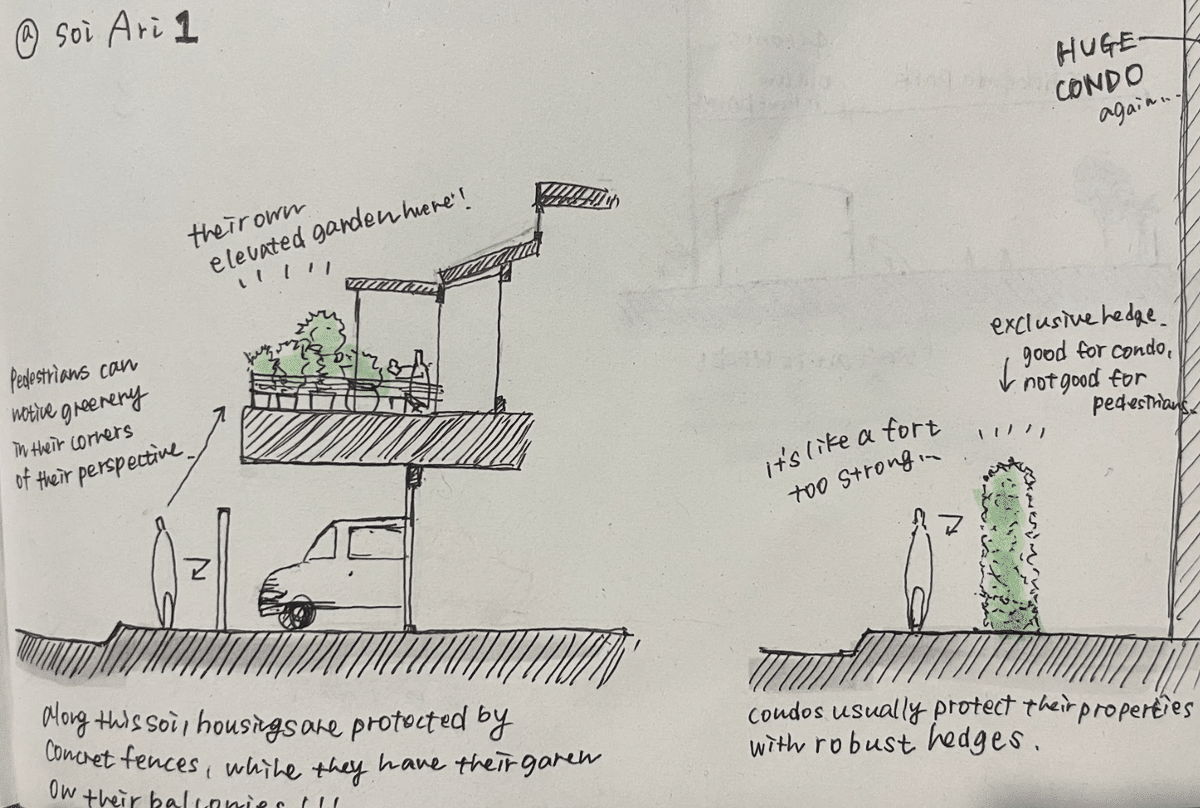 @ Soi Ari 1
HUGE
CONDO
again...
their own
elevated garden here!!
Pedestrians can
notive greenery
in their corners
of their perspective.
exclusive hedge.
good for condo,
not good for
pedestrians.
it's like a fort
too strong...
Along this soi, housings are protected by
concret fences, while they have their garen
on their balconies!!!
condos usually protect their properties
with robust hedges.